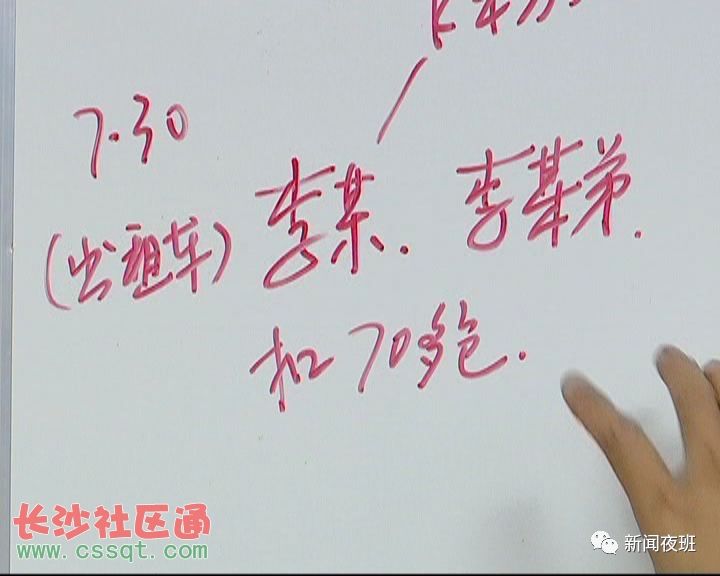 7.30
李某. 李某弟.
(出租车)
扣70多包.
长沙社区通
www.cssqt.com
新闻夜班